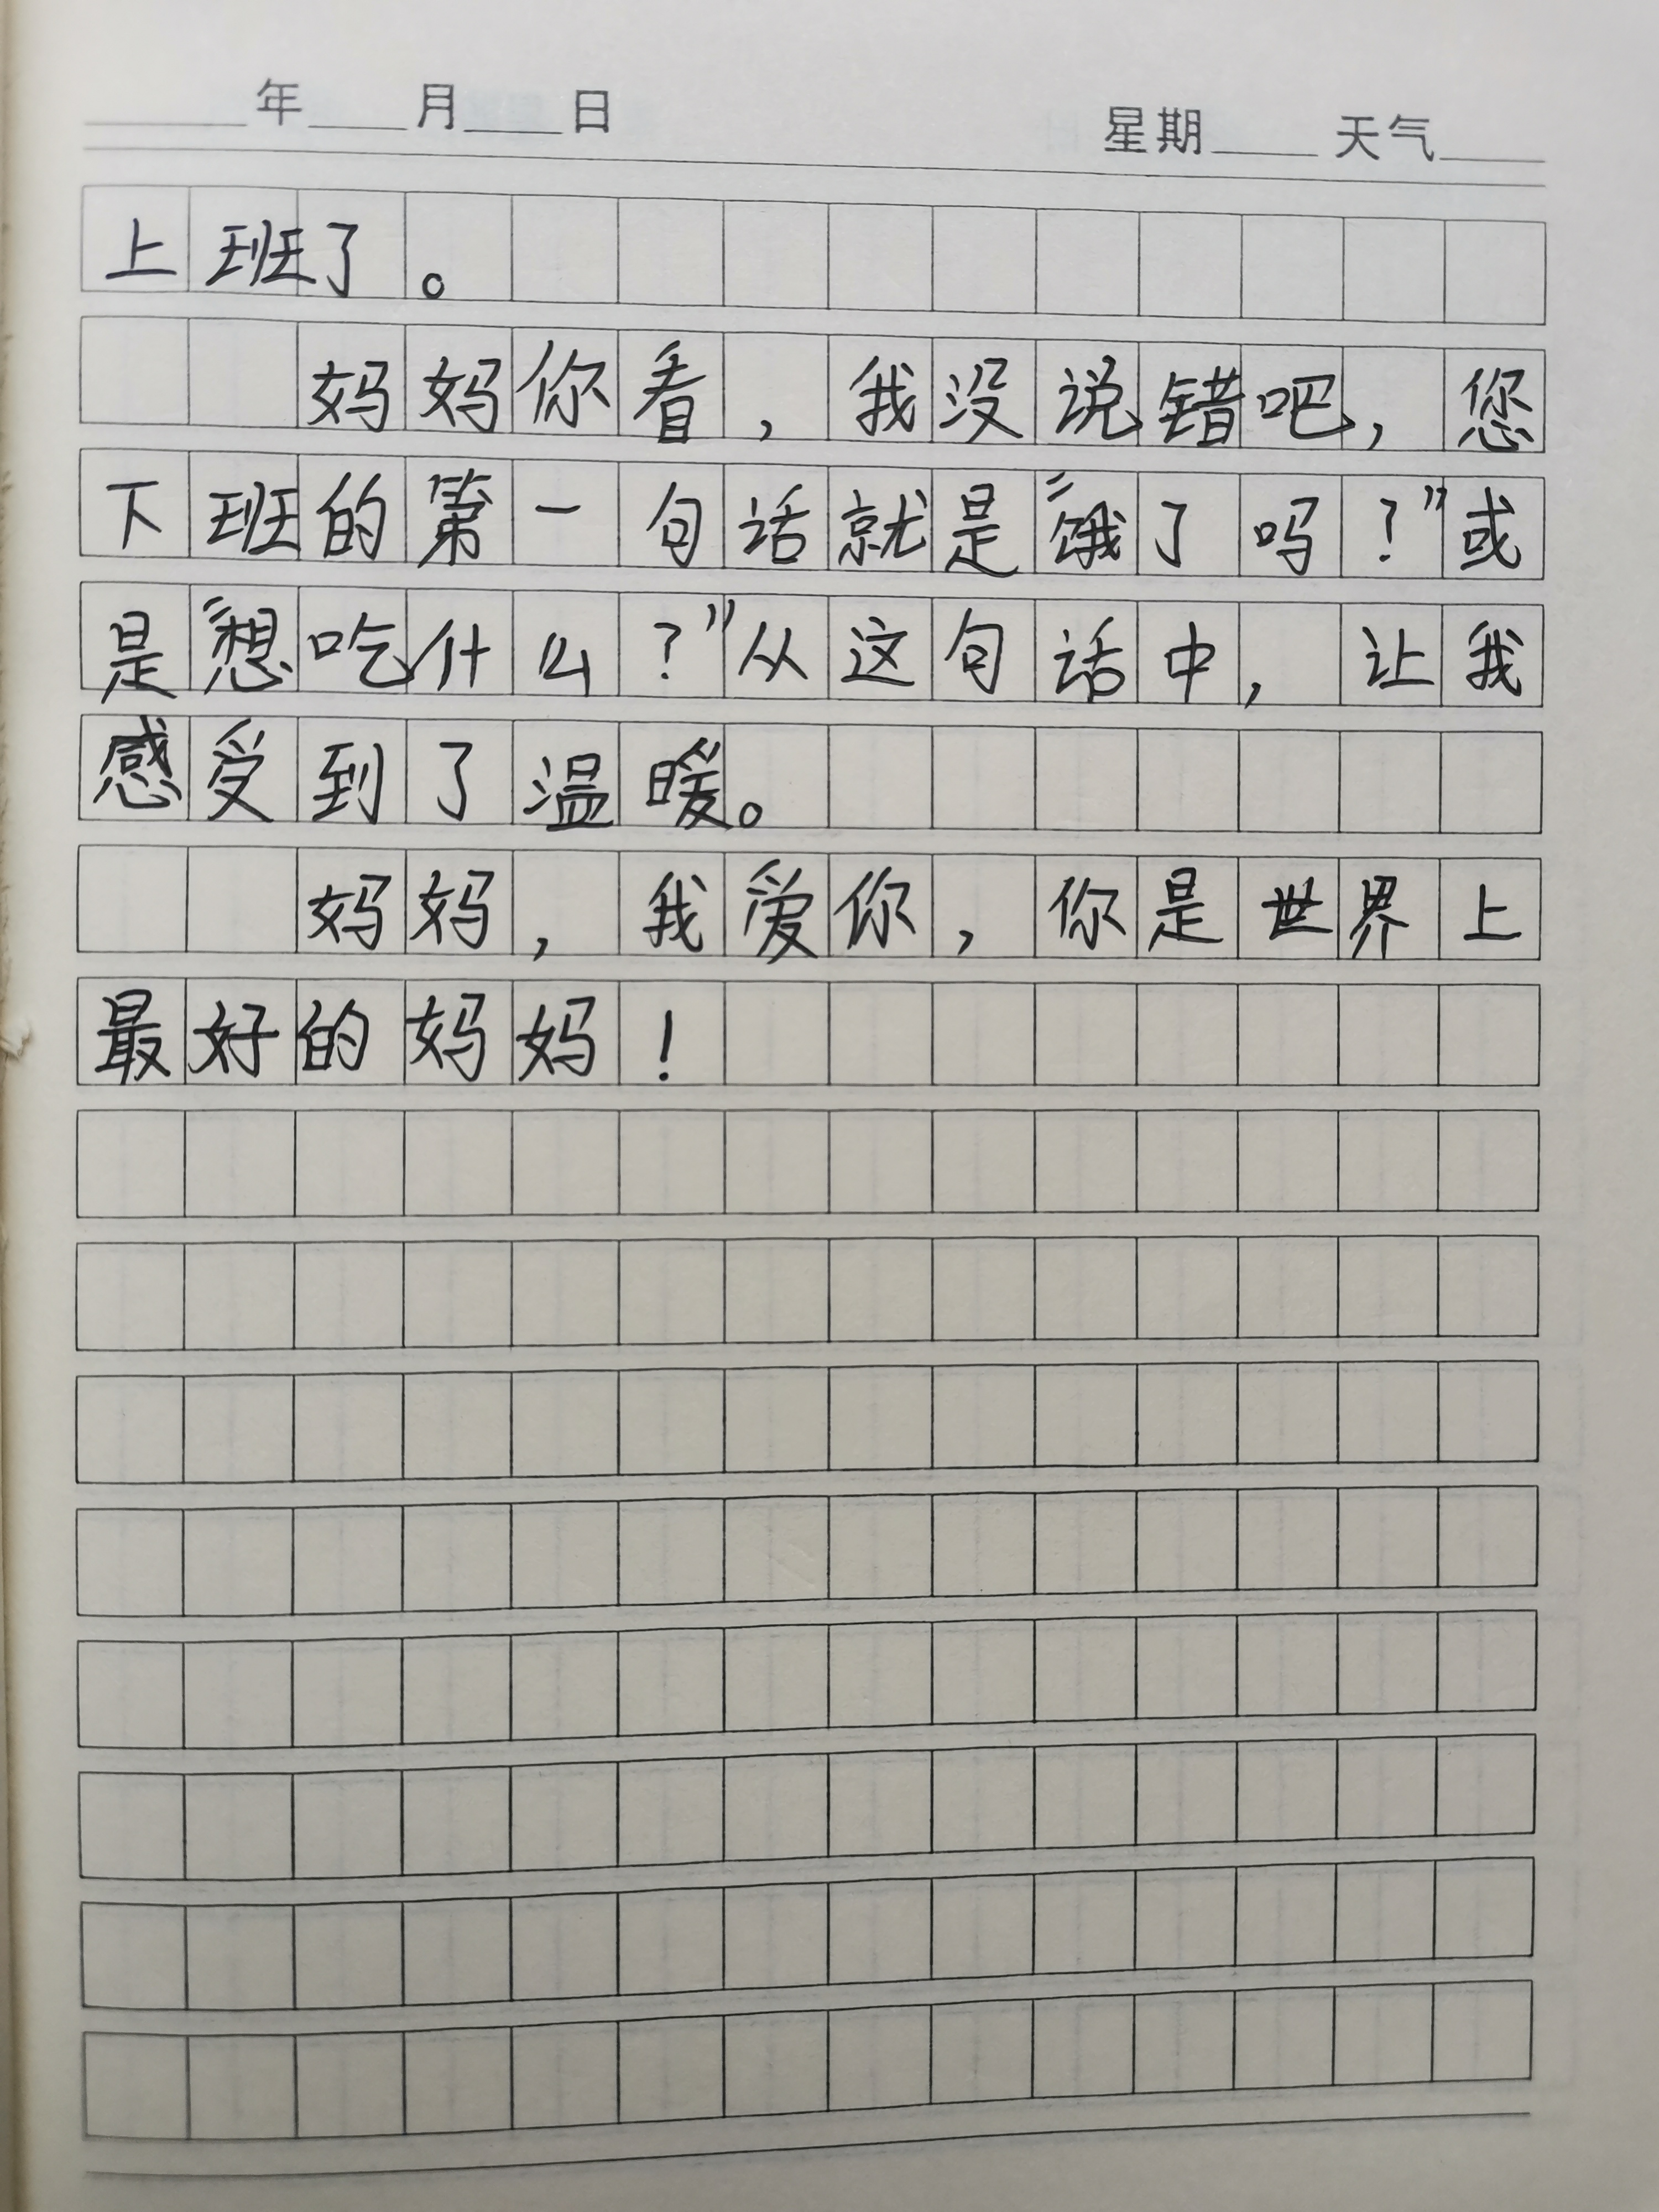 ____年____月____日 星期____天气____
上班了。
妈妈你看，我没说错吧，您
下班的第一句话就是“饿了吗？”或
是“想吃什么？”从这句话中，让我
感受到了温暖。
妈妈，我爱你，你是世界上
最好的妈妈！